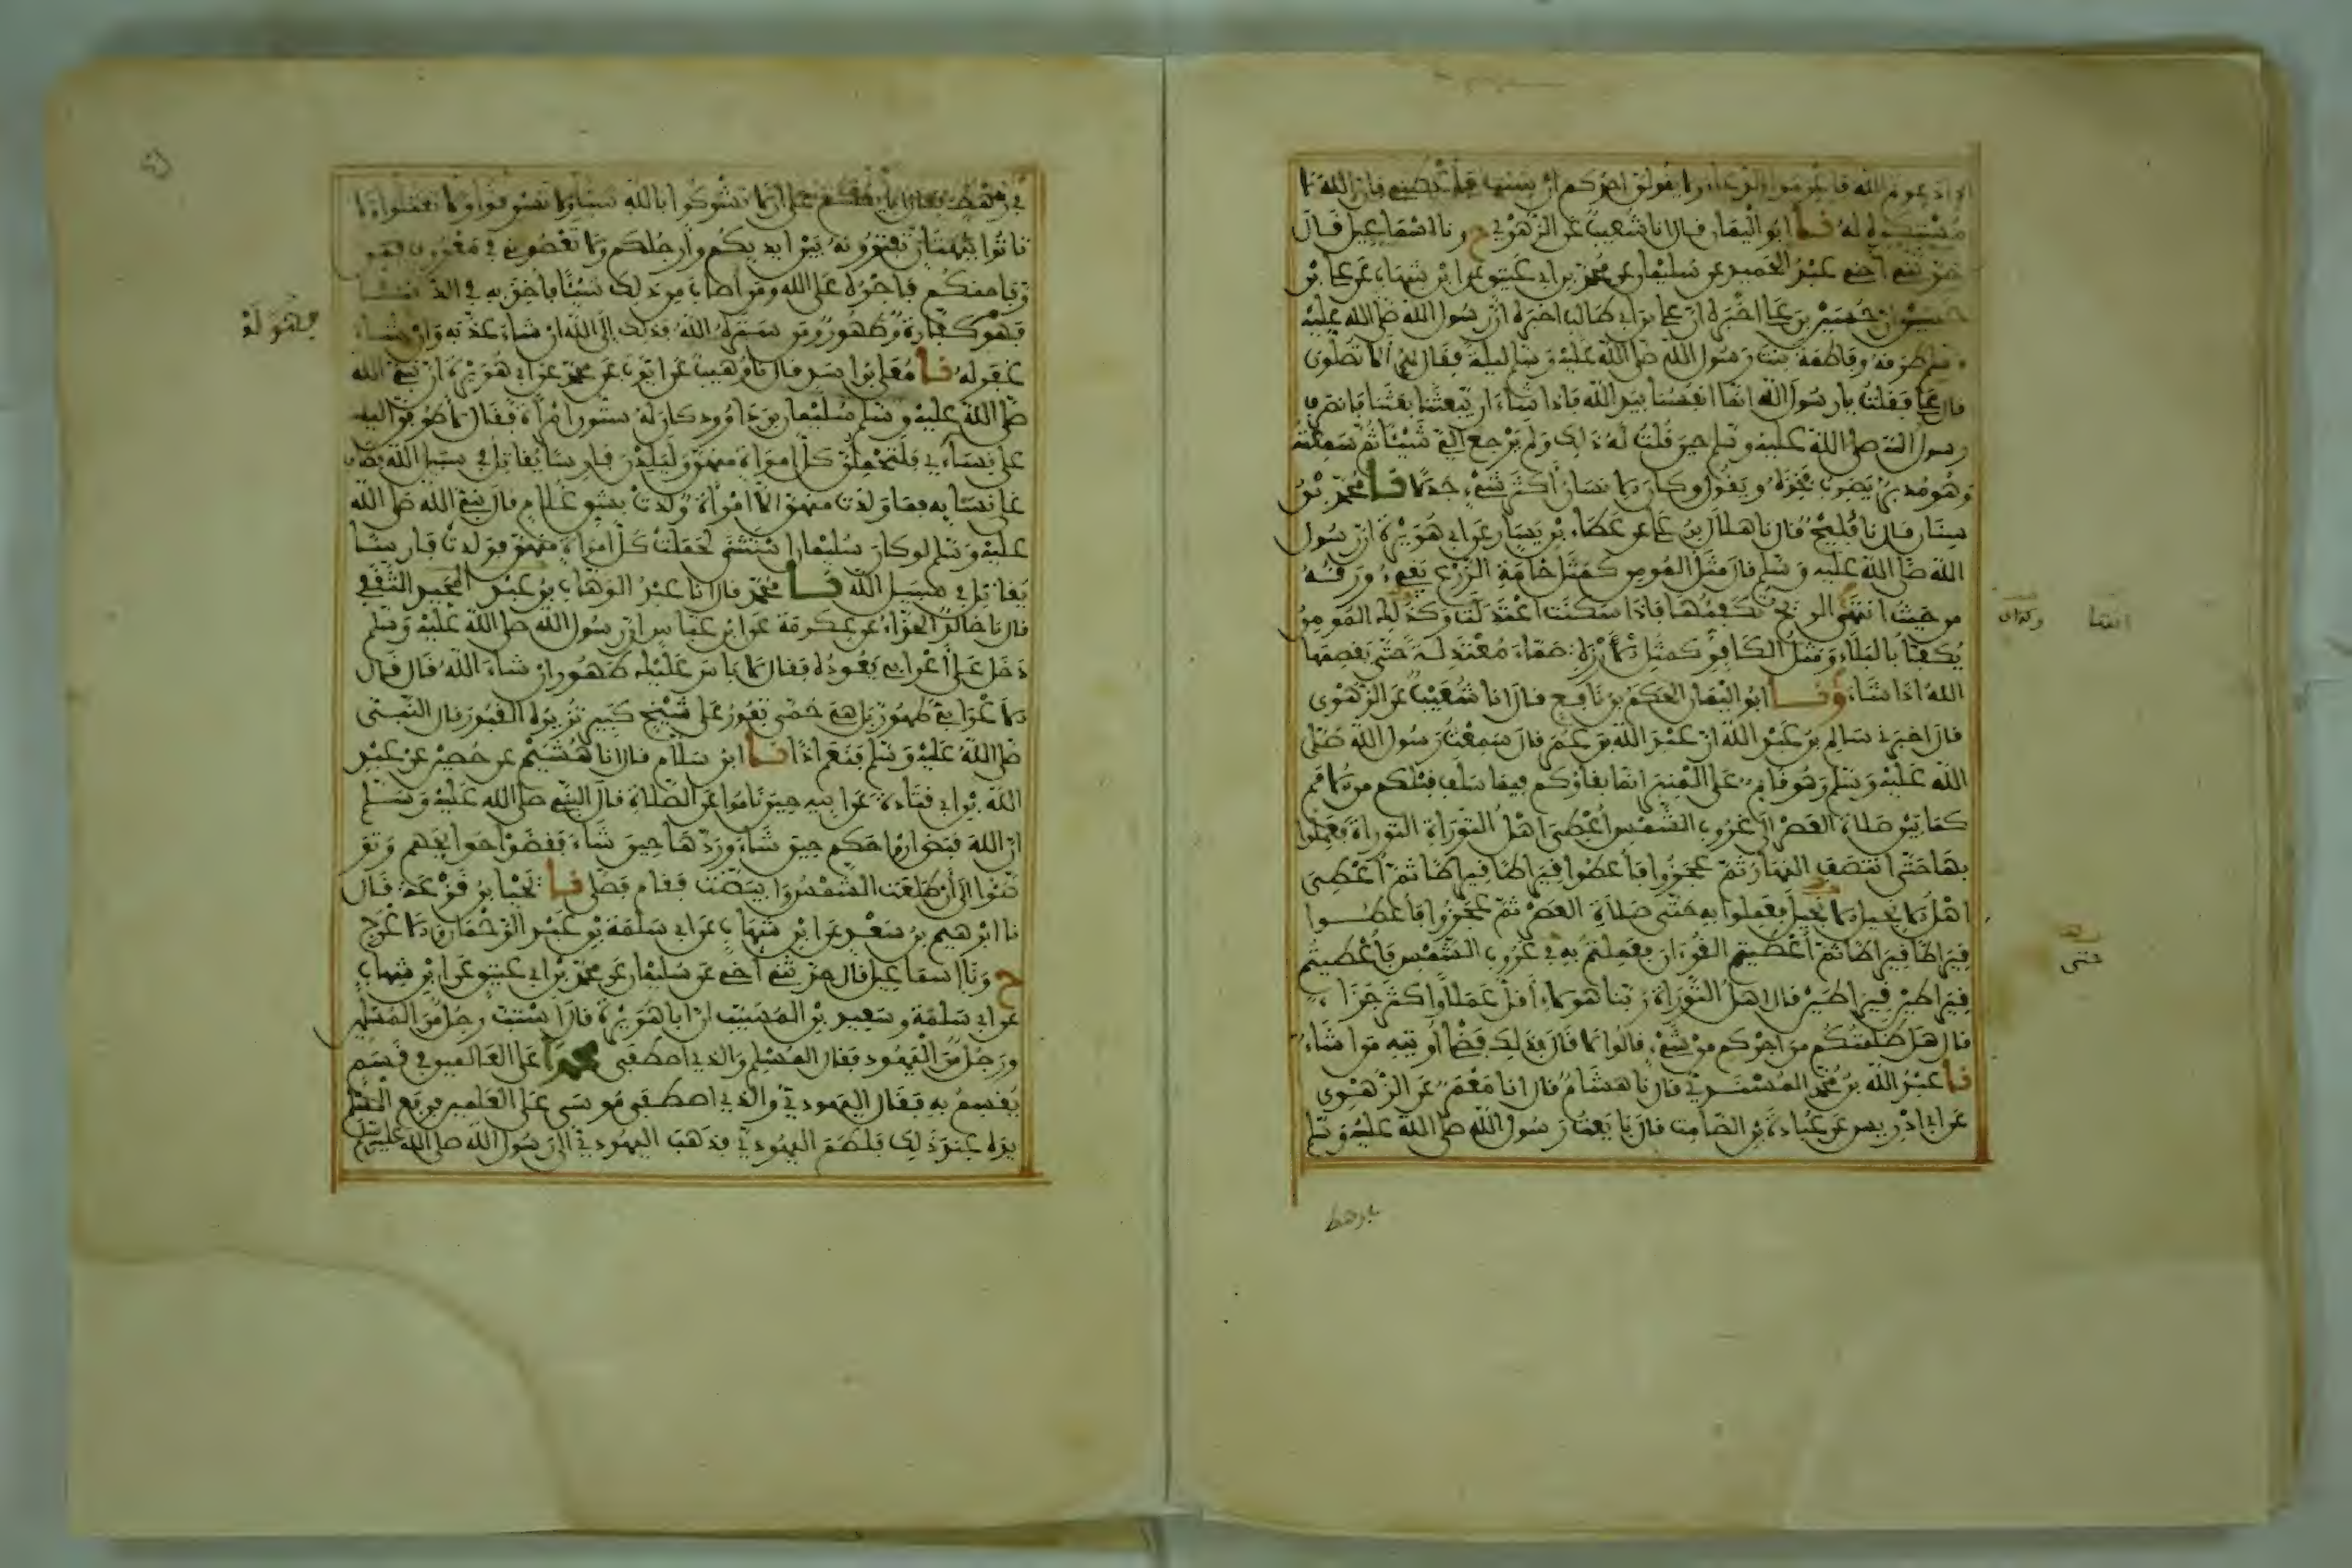 اذا دعوتم الله فاعزموا في الدعاء ولا يقولن احدكم ان شيت فاعطني فان الله لا
مستكره له نا ابو اليمان قال انا شعيب عن الزهري ح ونا اسماعيل قال
حدثني اخي عبد الحميد عن سليمان عن محمد بن ابي عتيق عن ابن شهاب عن علي بن
حسين ان حسين بن علي اخبره ان علي بن ابي طالب اخبره ان رسول الله صلى الله عليه
وسلم طرقه وفاطمة بنت رسول الله صلى الله عليه وسلم ليلة فقال لهم الا تصلون
قال علي فقلت يا رسول الله انما انفسنا بيد الله فاذا شاء ان يبعثنا بعثنا فانصرف
رسول الله صلى الله عليه وسلم حين قلت له ذلك ولم يرجع الي شيئا ثم سمعته
وهو مدبر يضرب فخذه ويقول وكان الانسان اكثر شيء جدلا نا محمد بن
سنان قال نا فليح قال نا هلال بن علي عن عطاء بن يسار عن ابي هريرة ان رسول
الله صلى الله عليه وسلم قال مثل المومن كمثل خامة الزرع يفيء ورقه
من حيث انتهى الريح تكفيها فاذا سكنت اعتدلت وكذلك المومن
يكفأ بالبلاء ومثل الكافر كمثل الارزة صماء معتدلة حتى يقصمها
الله اذا شاء ونا ابو اليمان الحكم بن نافع قال انا شعيب عن الزهري
قال اخبرني سالم بن عبد الله ان عبد الله بن عمر قال سمعت رسول الله صلى
الله عليه وسلم وهو قايم على المنبر انما بقاؤكم فيما سلف قبلكم من الامم
كما بين صلاة العصر الى غروب الشمس اعطي اهل التوراة التوراة فعملوا
بها حتى انتصف النهار ثم عجزوا فاعطوا قيراطا قيراطا ثم اعطي
اهل الانجيل الانجيل فعملوا به حتى صلاة العصر ثم عجزوا فاعطوا
قيراطا قيراطا ثم اعطيتم القرءان فعملتم به في غروب الشمس فاعطيتم
قيراطين قيراطين قال اهل التوراة ربنا هولاء اقل عملا واكثر جزاء
قال هل ظلمتكم من اجركم من شيء قالوا لا قال فذلك فضلي اوتيه من اشاء
نا عبد الله بن محمد المسندي قال نا هشام قال انا معمر عن الزهري
عن ابي ادريس عن عبادة بن الصامت قال بايعت رسول الله صلى الله عليه وسلم
انتها
حتى
في رهط فقال ابايعكم على ان لا تشركوا بالله شيئا ولا تسرقوا ولا تقتلوا ولا
تاتوا ببهتان تفترونه بين ايديكم وارجلكم ولا تعصوني في معروف فمن
وفى منكم فاجره على الله ومن اصاب من ذلك شيئا فاخذ به في الدنيا
فهو كفارة وطهور ومن ستره الله فذلك الى الله ان شاء عذبه وان شاء
غفر له نا معلى بن اسد قال نا وهيب عن ايوب عن محمد عن ابي هريرة ان نبي الله
صلى الله عليه وسلم سليمان بن داوود كان له ستون امراة فقال لاطوفن الليلة
على نساءي فلتحملن كل امراة منهن ولتلدن فارسا يقاتل في سبيل الله فطاف
على نسايه فما ولدت منهن الا امراة ولدت بشق غلام قال نبي الله صلى الله
عليه وسلم لو كان سليمان استثنى لحملت كل امراة منهن فولدت فارسا
يقاتل في سبيل الله نا محمد قال انا عبد الوهاب بن عبد المجيد الثقفي
قال نا خالد الحذاء عن عكرمة عن ابن عباس ان رسول الله صلى الله عليه وسلم
دخل على اعرابي يعوده فقال لا باس عليك طهور ان شاء الله قال قال
الاعرابي طهور بل هي حمى تفور على شيخ كبير تزيره القبور قال النبي
صلى الله عليه وسلم فنعم اذا نا ابن سلام قال انا هشيم عن حصين عن عبد
الله بن ابي قتادة عن ابيه حين ناموا عن الصلاة قال النبي صلى الله عليه وسلم
ان الله قبض ارواحكم حين شاء وردها حين شاء فقضوا حوايجهم وتو
ضئوا الى ان طلعت الشمس وابيضت فقام فصلى نا يحيى بن قزعة قال
نا ابرهيم بن سعد عن ابن شهاب عن ابي سلمة بن عبد الرحمان والاعرج
ح ونا اسماعيل قال حدثني اخي عن سليمان عن محمد بن ابي عتيق عن ابن شهاب
عن ابي سلمة وسعيد بن المسيب ان ابا هريرة قال استب رجل من المسلمين
ورجل من اليهود فقال المسلم والذي اصطفى محمدا على العالمين في قسم
يقسم به فقال اليهودي والذي اصطفى موسى على العلمين فرفع المسلم
يده عند ذلك فلطم اليهودي فذهب اليهودي الى رسول الله صلى الله عليه وسلم
فهو له